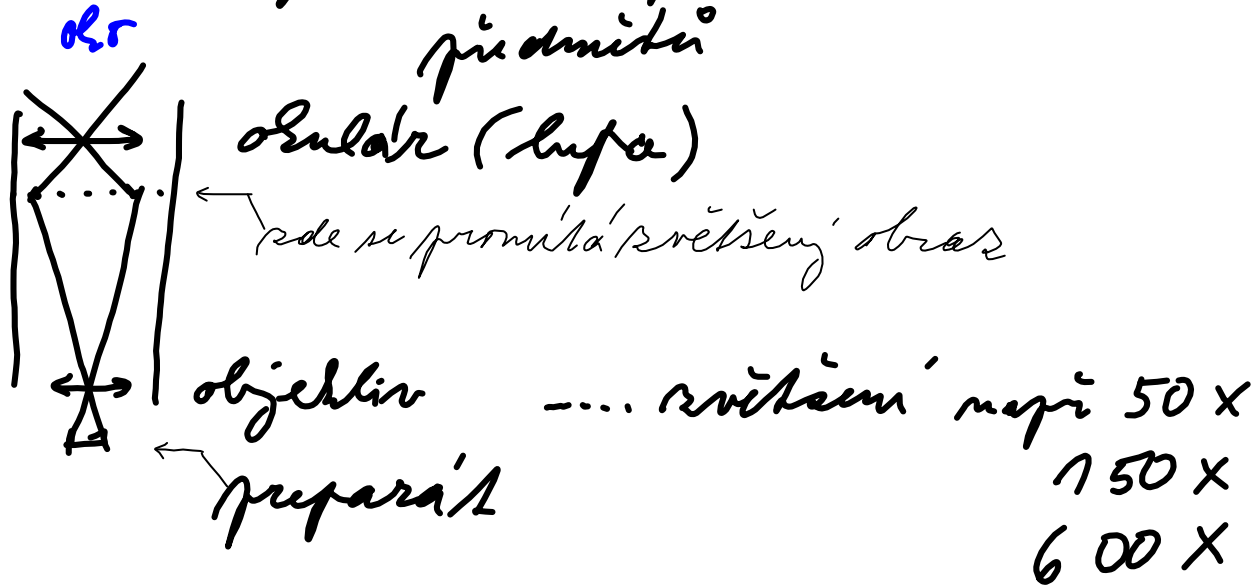 oko
předmětů
okulár (lupa)
zde se promítá zvětšený obraz
objektiv ---.. zvětšení např 50 x
150 x
600 x
preparát